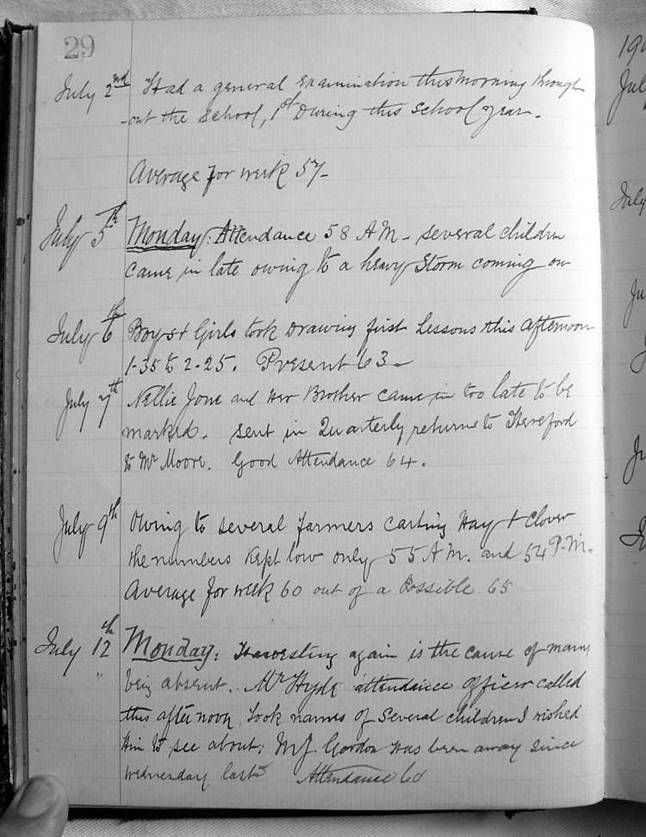 29
July 2nd Had a general examination this morning through
-out the School, 1st During this School year.
Average for week 57-
July 5th Monday: Attendance 58 A.M. - several children
came in late owing to a heavy Storm coming on
July 6th Boys & Girls took Drawing first Lessons this afternoon
1-35 to 2-25. Present 63-
July 7th Nellie Jone and Her Brother came in too late to be
marked. sent in Quarterly returns to Hereford
to Mr Moore. Good Attendance 64.
July 9th Owing to several farmers carting Hay & Clover
the numbers kept low only 55 A.M. and 54 P.M.
Average for week 60 out of a Possible 65
July 12th Monday: Harvesting again is the cause of many
being absent. Mr Hyde attendance officer called
this afternoon, Took names of Several children I wished
Him to see about: Gordon has been away since
Wednesday last Attendance 60
190
Jul
July
Ju
Ju